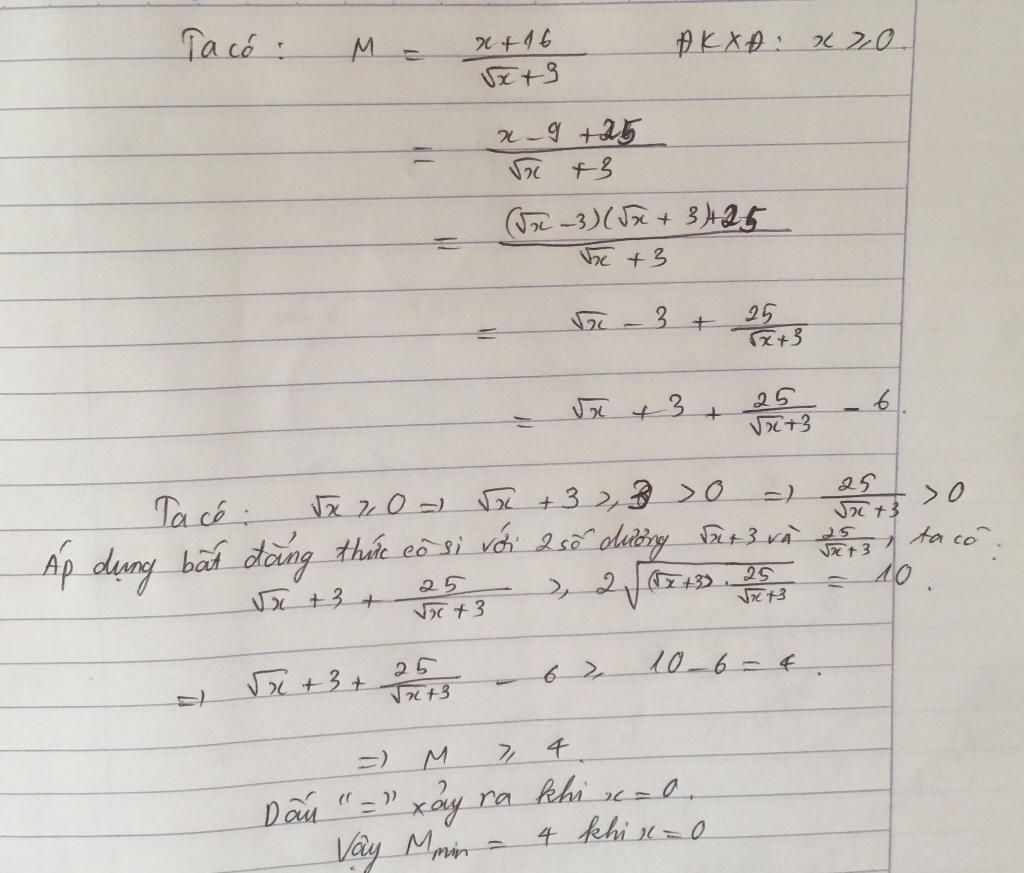 Ta có : M = (x+16)/(√x+3) ĐKXĐ : x ≥ 0.
= (x - 9 + 25)/(√x + 3)
= ((√x - 3)(√x + 3) + 25)/(√x + 3)
= √x - 3 + 25/(√x+3)
= √x + 3 + 25/(√x+3) - 6.
Ta có : √x ≥ 0 => √x + 3 ≥ 3 > 0 => 25/(√x+3) > 0
Áp dụng bất đẳng thức cô si với 2 số dương √x+3 và 25/(√x+3), ta có :
√x + 3 + 25/(√x+3) ≥ 2√((√x+3) . 25/(√x+3)) = 10.
=> √x + 3 + 25/(√x+3) - 6 ≥ 10 - 6 = 4.
=> M ≥ 4.
Dấu "=" xảy ra khi x = 0.
Vậy Mmin = 4 khi x = 0